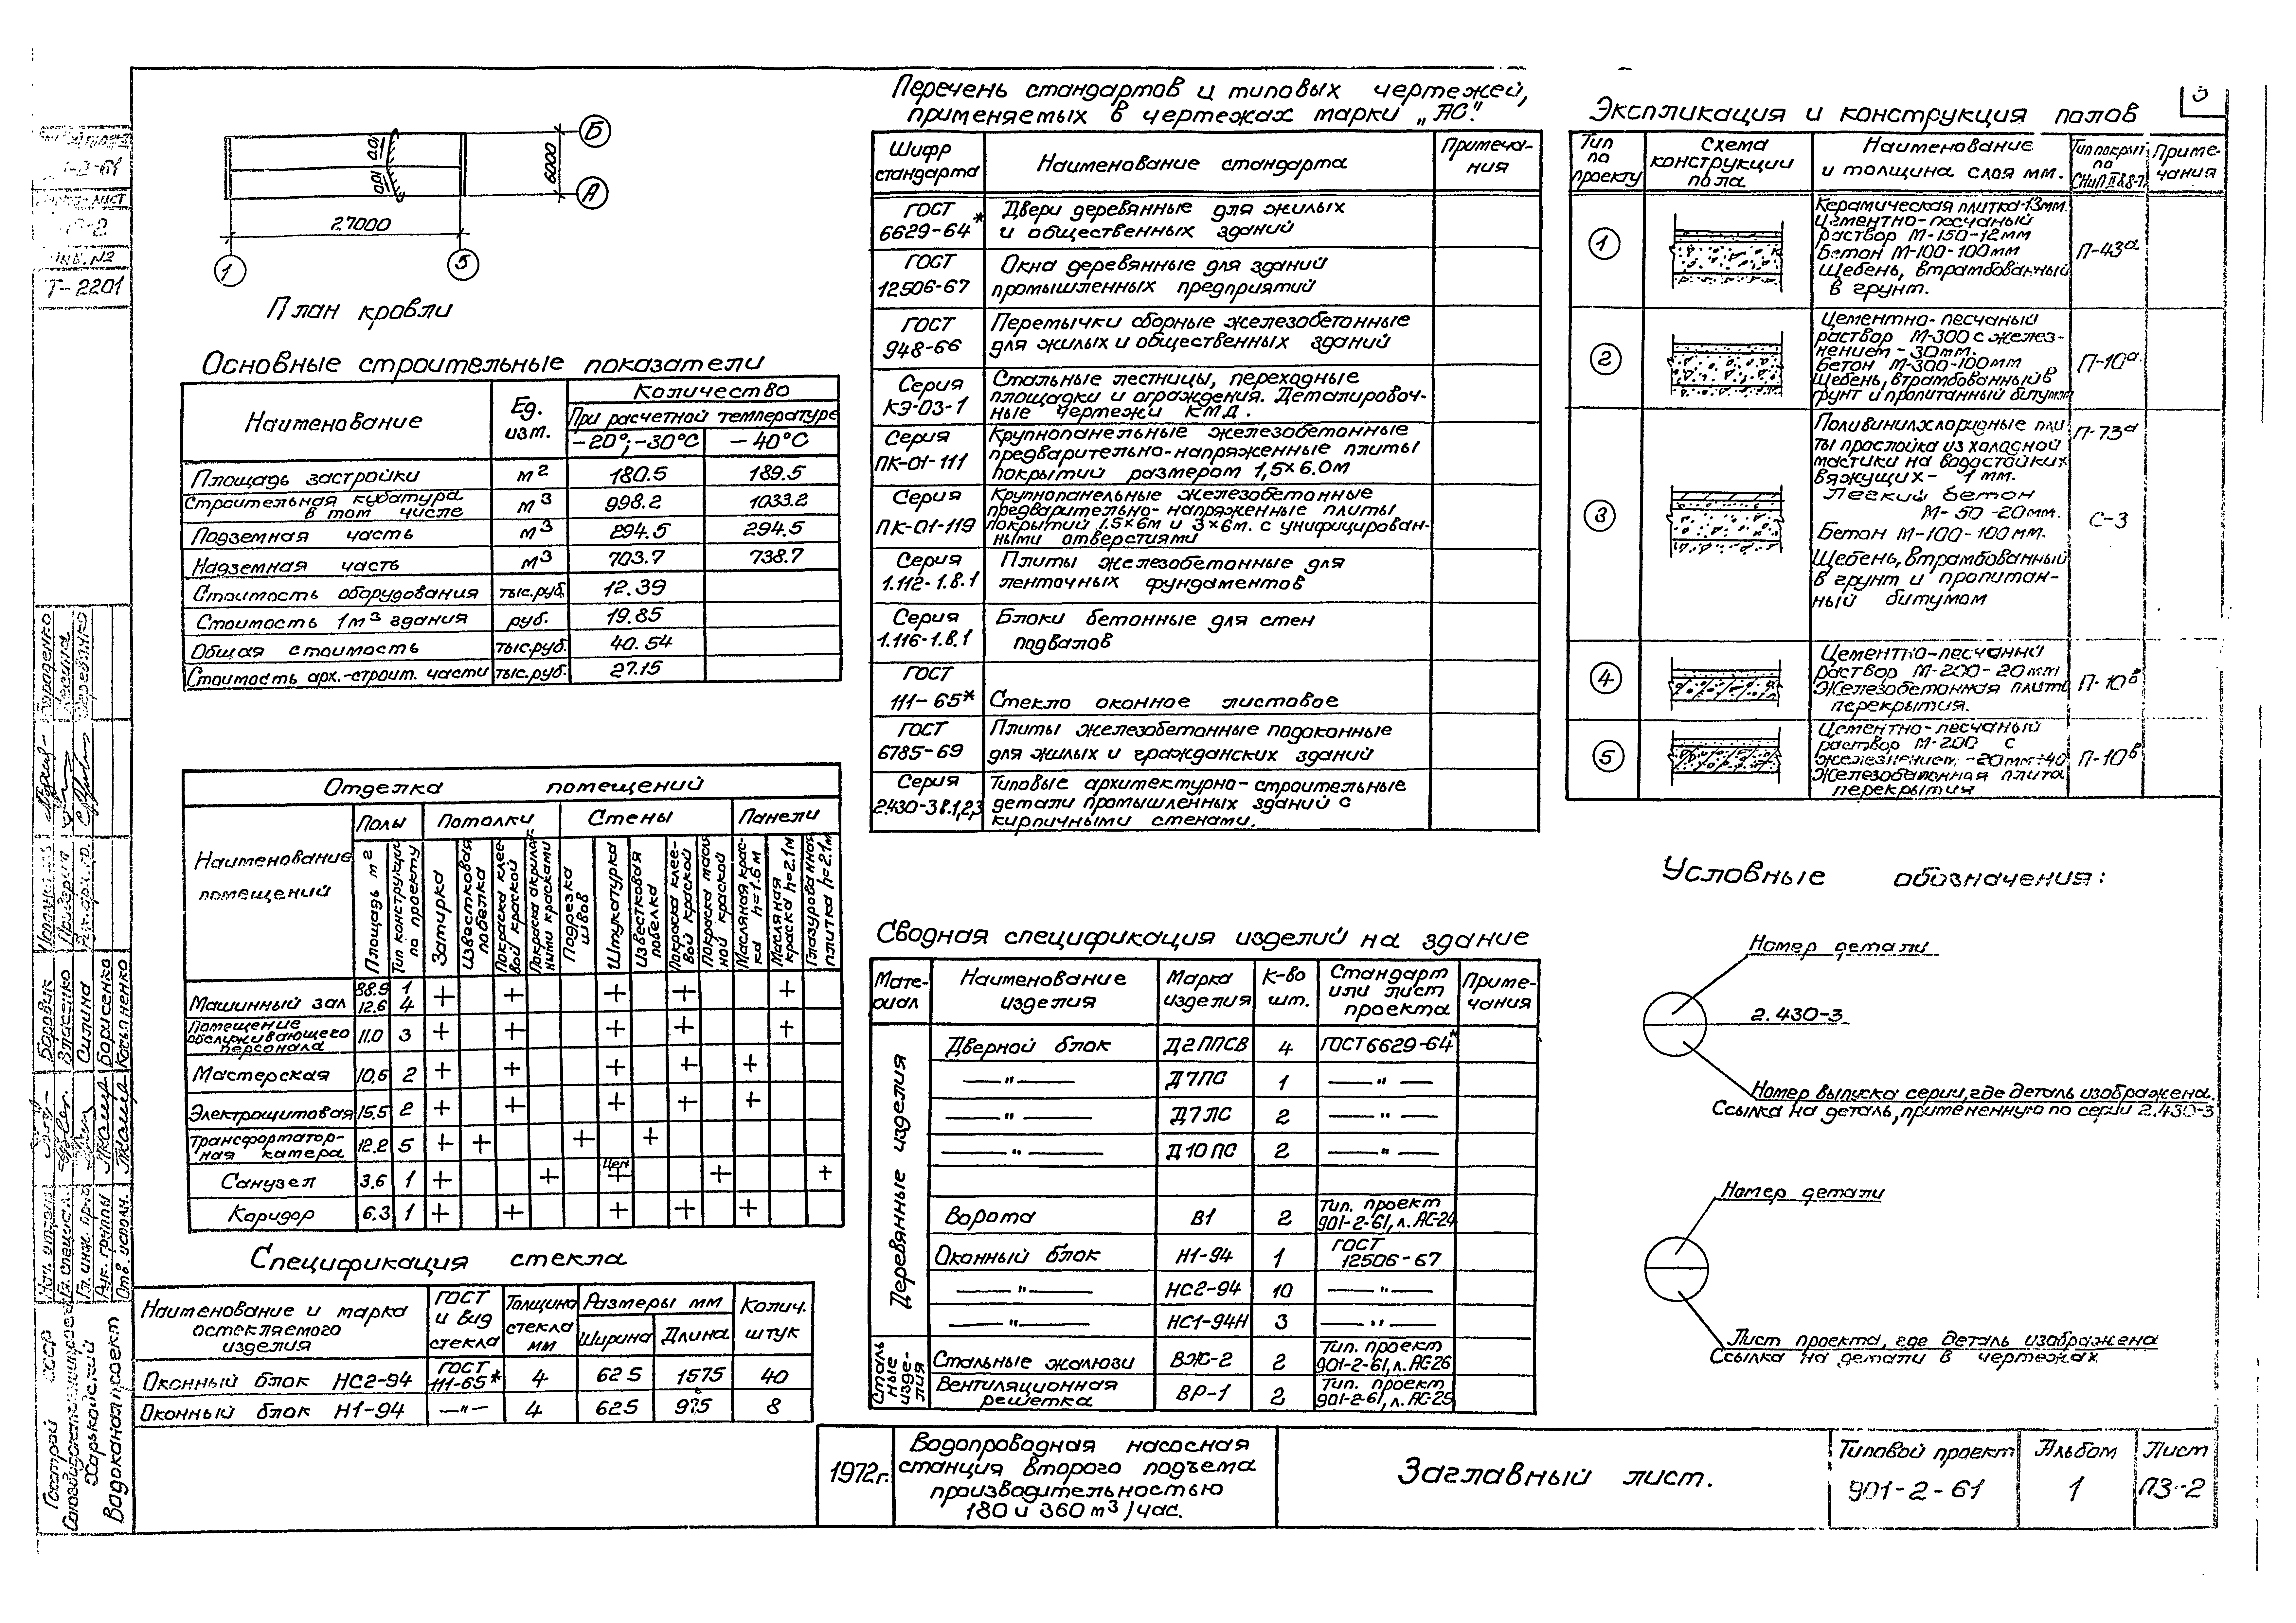 3
Б
А
0,01
0,01
6000
27000
1
5
План кровли
Основные строительные показатели
Наименование
Ед. изм.
Количество
При расчетной температуре
-20°; -30°С
-40°С
Площадь застройки м² 180.5 189.5
Строительная кубатура в том числе м³ 998.2 1033.2
Подземная часть м³ 294.5 294.5
Надземная часть м³ 703.7 738.7
Стоимость оборудования тыс.руб. 12.39
Стоимость 1м³ здания руб. 19.85
Общая стоимость тыс.руб. 40.54
Стоимость арх.-строит. части тыс.руб. 27.15
Отделка помещений
Наименование помещений
Полы
Потолки
Стены
Панели
Площадь м²
Тип конструкции по проекту
Затирка
Известковая побелка
Покраска клеевой краской
Покраска акрилатными красками
Подрезка швов
Штукатурка
Известковая побелка
Покраска клеевой краской
Покраска масляной краской
Масляная краска h=1.6м
Масляная краска h=2.1м
Глазурованная плитка h=2.1м
Машинный зал 88.9 1 + + + + +
12.6 4
Помещение обслуживающего персонала 11.0 3 + + + + +
Мастерская 10.6 2 + + + + +
Электрощитовая 15.5 2 + + + + +
Трансформаторная камера 12.2 5 + + + +
Санузел 3.6 1 + + Цем + + +
Коридор 6.3 1 + + + + +
Спецификация стекла
Наименование и марка остекляемого изделия
ГОСТ и вид стекла
Толщина стекла мм
Размеры мм
Ширина
Длина
Колич. штук
Оконный блок НС2-94 ГОСТ 111-65* 4 625 1575 40
Оконный блок Н1-94 —"— 4 625 975 8
Перечень стандартов и типовых чертежей,
применяемых в чертежах марки „АС".
Шифр стандарта
Наименование стандарта
Примечания
ГОСТ 6629-64*
Двери деревянные для жилых
и общественных зданий
ГОСТ 12506-67
Окна деревянные для зданий
промышленных предприятий
ГОСТ 948-66
Перемычки сборные железобетонные
для жилых и общественных зданий
Серия КЭ-03-1
Стальные лестницы, переходные
площадки и ограждения. Деталировоч-
ные чертежи КМД.
Серия ПК-01-111
Крупнопанельные железобетонные
предварительно-напряженные плиты
покрытий размером 1,5×6.0м
Серия ПК-01-119
Крупнопанельные железобетонные
предварительно-напряженные плиты
покрытий 1.5×6м и 3×6м. с унифицирован-
ными отверстиями
Серия 1.112-1.в.1
Плиты железобетонные для
ленточных фундаментов
Серия 1.116-1.в.1
Блоки бетонные для стен
подвалов
ГОСТ 111-65*
Стекло оконное листовое
ГОСТ 6785-69
Плиты железобетонные подоконные
для жилых и гражданских зданий
Серия 2.430-3в.1,2,3
Типовые архитектурно-строительные
детали промышленных зданий с
кирпичными стенами.
Сводная спецификация изделий на здание
Материал
Наименование изделия
Марка изделия
К-во шт.
Стандарт или лист проекта
Примечания
Деревянные изделия
Дверной блок Д2ППСВ 4 ГОСТ 6629-64*
—"— Д7ПС 1 —"—
—"— Д7ЛС 2 —"—
—"— Д10ПС 2 —"—
Ворота В1 2 Тип. проект 901-2-61, л. АС-24
Оконный блок Н1-94 1 ГОСТ 12506-67
—"— НС2-94 10 —"—
—"— НС1-94Н 3 —"—
Стальные изделия
Стальные жалюзи ВЖ-2 2 Тип. проект 901-2-61, л. АС-26
Вентиляционная решетка ВР-1 2 Тип. проект 901-2-61, л. АС-25
Экспликация и конструкция полов
Тип по проекту
Схема конструкции пола
Наименование и толщина слоя мм.
Тип покрыт. по СНиП
Примечания
1
Керамическая плитка-13мм.
Цементно-песчаный
раствор М-150-12мм
Бетон М-100-100мм
Щебень, втрамбованный
в грунт.
П-43а
2
Цементно-песчаный
раствор М-300 с желез-
нением-30мм.
Бетон М-300-100мм
Щебень, втрамбованный в
грунт и пропитанный битумом
П-10а
3
Поливинилхлоридные пли
ты прослойка из холодной
мастики на водостойких
вяжущих- 1 мм.
Легкий бетон
М-50-20мм.
Бетон М-100-100мм.
Щебень, втрамбованный
в грунт и пропитан-
ный битумом
П-73а
С-3
4
Цементно-песчаный
раствор М-200-20мм
Железобетонная плита
перекрытия.
П-10в
5
Цементно-песчаный
раствор М-200 с
железнением-20мм÷40
Железобетонная плита
перекрытия
П-10в
Условные обозначения:
Номер детали
2.430-3
Номер выпуска серии, где деталь изображена.
Ссылка на деталь, примененную по серии 2.430-3
Номер детали
Лист проекта, где деталь изображена
Ссылка на детали в чертежах
1972г.
Водопроводная насосная
станция второго подъема
производительностью
180 и 360 м³/час.
Заглавный лист.
Типовой проект
901-2-61
Альбом
1
Лист
ПЗ-2
Т-2201
Инв. №
Боровик
Власенко
Силина
Борисенко
Касьяненко
Рук. группы
Госстрой СССР
Харьковский
Водоканалпроект